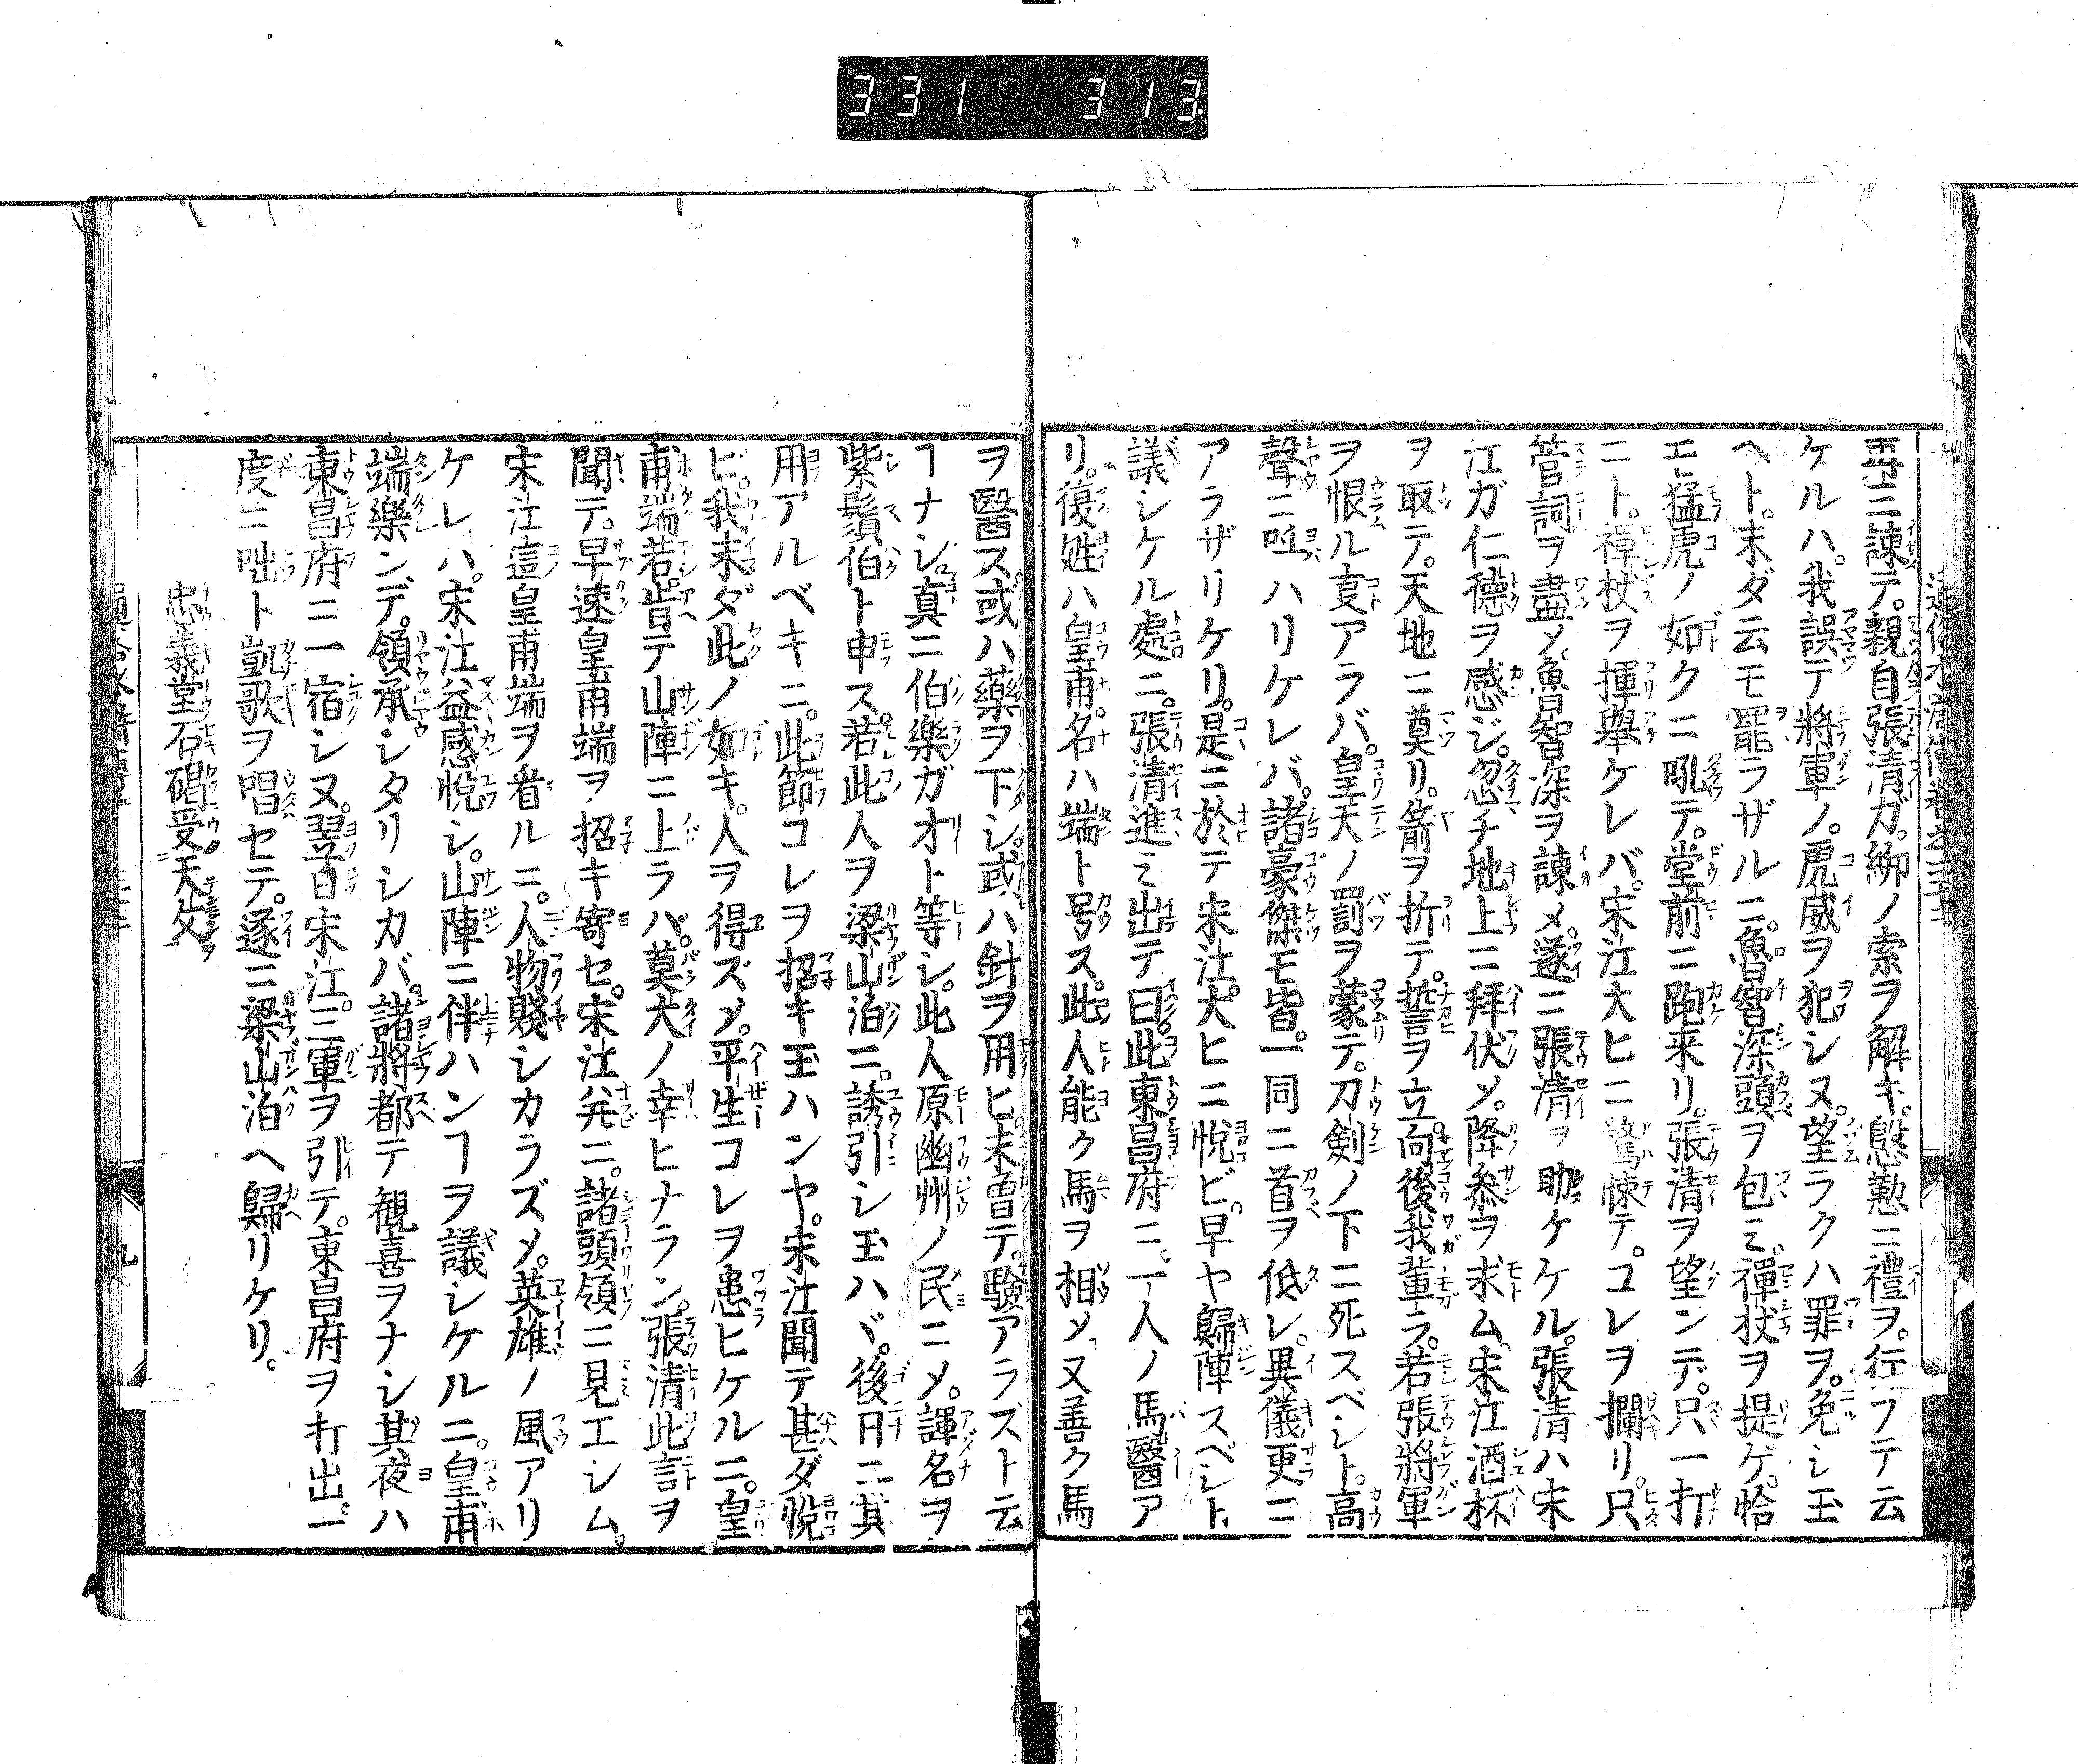 331 313
再三諌テ。親自張清ガ。綁ノ索ヲ解キ。慇懃ニ禮ヲ。行フテ云
ケルハ。我誤テ將軍ノ。虎威ヲ犯シヌ。望ラクハ罪ヲ。免シ玉
ヘト。末ダ云モ罷ラザルニ。魯智深頭ヲ包ミ。禪杖ヲ提ゲ。恰
エ猛虎ノ如クニ吼テ。堂前ニ跑来リ。張清ヲ望ンデ。只一打
ニト。禪杖ヲ揮擧ケレバ。宋江大ヒニ驚悚テ。コレヲ攔リ。只
管詞ヲ盡メ。魯智深ヲ諌メ。遂ニ張清ヲ助ケケル。張清ハ宋
江ガ仁德ヲ感ジ。忽チ地上ニ拜伏メ。降參ヲ求ム。宋江酒杯
ヲ取テ。天地ニ奠リ。箭ヲ折テ。誓ヲ立。向後我輩ラ。若張將軍
ヲ恨ル㕝アラバ。皇天ノ罰ヲ蒙テ。刀劍ノ下ニ死スベシト。高
聲ニ呼ハリケレバ。諸豪傑モ皆。一同ニ首ヲ低レ。異儀更ニ
アラザリケリ。是ニ於テ宋江。大ヒニ悅ビ。早ヤ歸陣スベシト
議シケル處ニ。張清進ミ出テ曰。此東昌府ニ。一人ノ馬醫ア
リ。復姓ハ皇甫。名ハ端ト号ス。此人能ク馬ヲ相メ、又善ク馬
ヲ醫ス。或ハ藥ヲ下シ。或ハ針ヲ用ヒ。未曽テ。驗アラズト云
ヿナシ。真ニ伯樂ガオト等シ。此人原幽州ノ民ニメ。諢名ヲ
紫鬚伯ト申ス。若此人ヲ梁山泊ニ。誘引シ玉ハヾ。後日ニ其
用アルベキニ。此節コレヲ招キ玉ハンヤ。宋江聞テ甚ダ悅
ビ。我未ダ此ノ如キ。人ヲ得ズメ。平生コレヲ患ヒケルニ。皇
甫端若肯テ山陣ニ上ラバ。莫大ノ幸ヒナラン。張清此言ヲ
聞テ。早速皇甫端ヲ招キ寄セ。宋江幷ニ。諸頭領ニ見エシム。
宋江這皇甫端ヲ看ルニ。人物賤シカラズメ。英雄ノ風アリ
ケレハ。宋江益感悅シ。山陣ニ伴ハンヿヲ議シケルニ。皇甫
端樂ンデ。領承シタリシカバ。諸將都テ觀喜ヲナシ其夜ハ
東昌府ニ一宿シヌ。翌日宋江。三軍ヲ引テ。東昌府ヲ打出。一
度ニ咄ト凱歌ヲ唱セテ。遂ニ梁山泊ヘ歸リケリ。
忠義堂石碣受天文
九